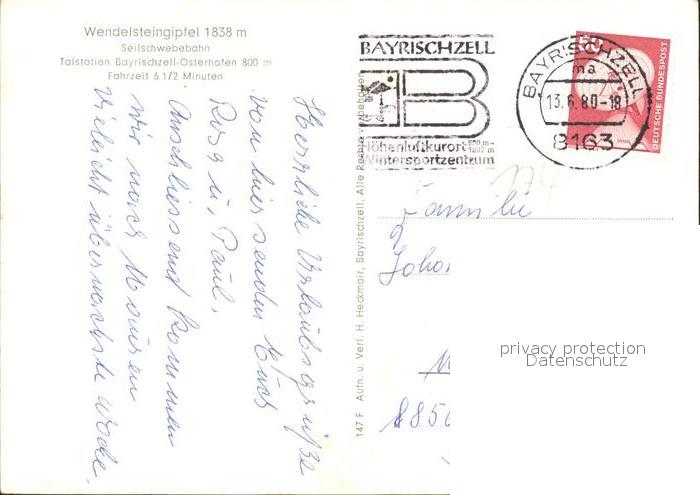 Wendelsteingipfel 1838 m
Seilschwebebahn
Talstation Bayrischzell-Osterhofen 800 m
Fahrzeit 6 1/2 Minuten
Herzliche Urlaubsgrüße
von hier senden Euch
Rosa u. Paul.
Anschliessend kommen
wir nach
vieleicht übernachste Woche.
147 F Aufn. u. Verl. H. Heckmair, Bayrischzell. Alle Rechte vorbehalten
BAYRISCHZELL
B
Höhenluftkurort 800 m -
Wintersportzentrum
BAYRISCHZELL
ma
13.6.80-18
8163
50
DEUTSCHE BUNDESPOST
174
Familie
Joha
885
privacy protection
Datenschutz